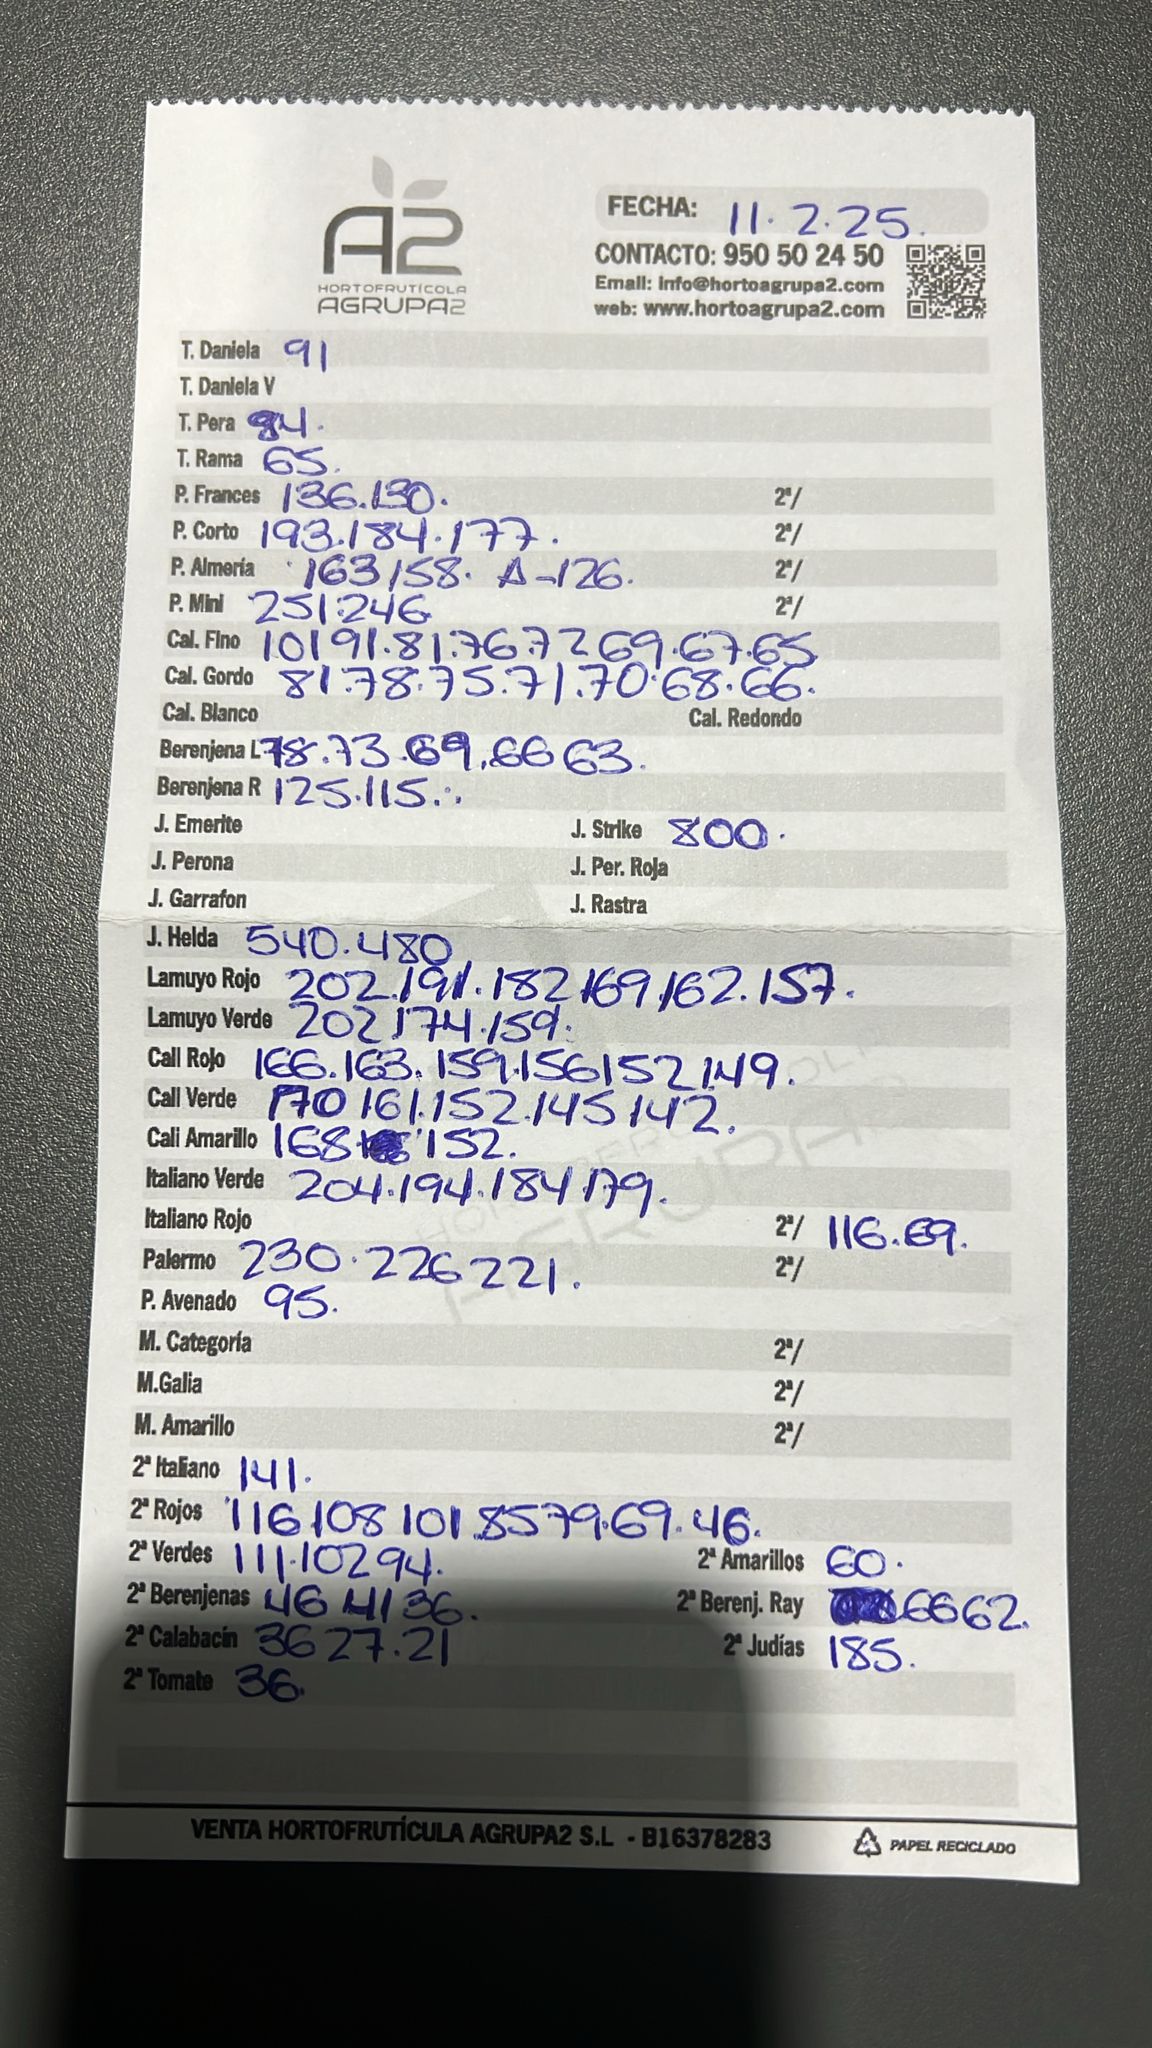 A2
HORTOFRUTÍCOLA
AGRUPA2
FECHA: 11.2.25.
CONTACTO: 950 50 24 50
Email: info@hortoagrupa2.com
web: www.hortoagrupa2.com
T. Daniela 91
T. Daniela V
T. Pera 84.
T. Rama 65.
P. Frances 136.130. 2ª/
P. Corto 193.184.177. 2ª/
P. Almería 163,158. A-126. 2ª/
P. Mini 251.246 2ª/
Cal. Fino 101 91.81.76.72 69.67.65
Cal. Gordo 81.78.75.71.70.68.66.
Cal. Blanco Cal. Redondo
Berenjena L 78.73.69.66 63.
Berenjena R 125.115..
J. Emerite J. Strike 800.
J. Perona J. Per. Roja
J. Garrafon J. Rastra
J. Helda 540.480
Lamuyo Rojo 202.191.182 169,162.157.
Lamuyo Verde 202 174.159.
Cali Rojo 166.163.159.156 152 149.
Cali Verde 170 161.152.145 142.
Cali Amarillo 168 152.
Italiano Verde 204.194.184 179.
Italiano Rojo 2ª/ 116.69.
Palermo 230.226 221. 2ª/
P. Avenado 95.
M. Categoría 2ª/
M.Galia 2ª/
M. Amarillo 2ª/
2ª Italiano 141.
2ª Rojos 116 108 101 85 79.69.46.
2ª Verdes 111.102 94. 2ª Amarillos 60.
2ª Berenjenas 46 41 36. 2ª Berenj. Ray 66 62.
2ª Calabacín 36 27.21 2ª Judías 185.
2ª Tomate 36.
VENTA HORTOFRUTÍCULA AGRUPA2 S.L - B16378283 PAPEL RECICLADO